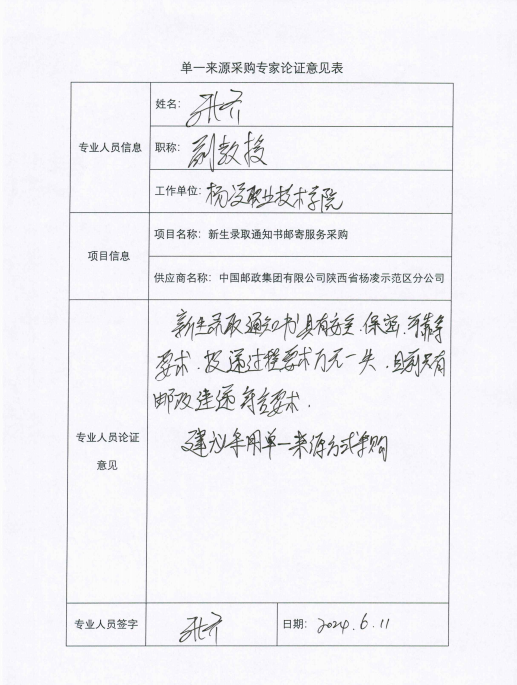 单一来源采购专家论证意见表
专业人员信息
姓名：
职称： 副教授
工作单位： 杨凌职业技术学院
项目信息
项目名称： 新生录取通知书邮寄服务采购
供应商名称： 中国邮政集团有限公司陕西省杨凌示范区分公司
专业人员论证
意见
新生录取通知书具有安全、保密、可靠等
要求，投递过程要求万无一失，目前只有
邮政速递符合要求．
建议采用单一来源方式采购
专业人员签字
日期： 2024.6.11